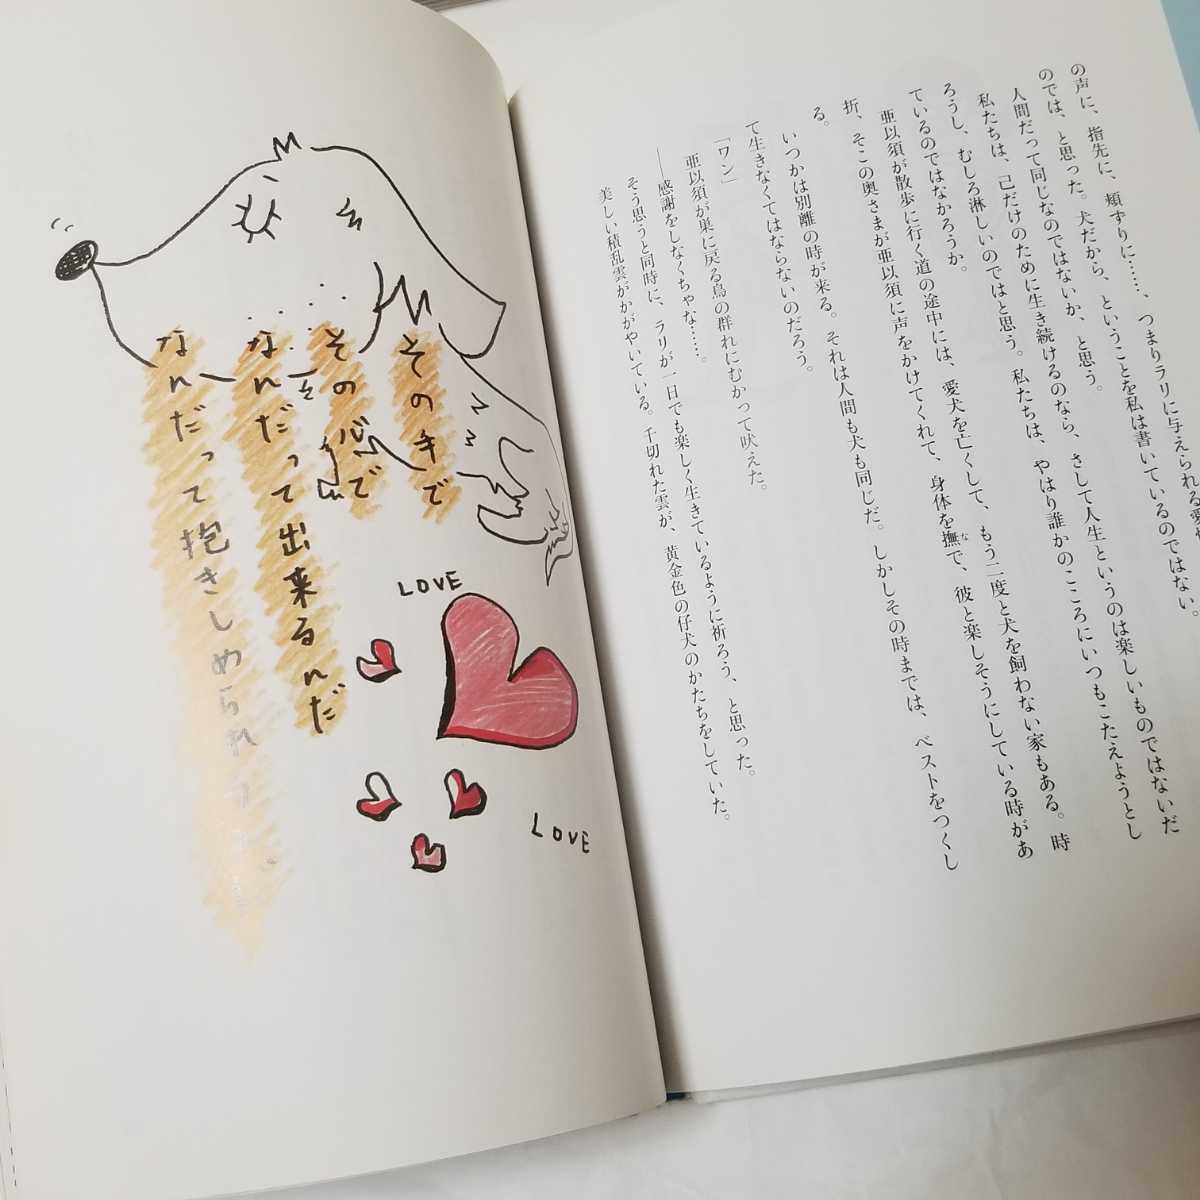 の声に、指先に、頬ずりに……、つまりラリに与えられる愛
のでは、と思った。犬だから、ということを私は書いているのではない。
人間だって同じなのではないか、と思う。
私たちは、己だけのために生き続けるのなら、さして人生というのは楽しいものではないだ
ろうし、むしろ淋しいのではと思う。私たちは、やはり誰かのこころにいつもこたえようとし
ているのではなかろうか。
亜以須が散歩に行く道の途中には、愛犬を亡くして、もう二度と犬を飼わない家もある。時
折、そこの奥さまが亜以須に声をかけてくれて、身体を撫で、彼と楽しそうにしている時があ
な
る。
いつかは別離の時が来る。それは人間も犬も同じだ。しかしその時までは、ベストをつくし
て生きなくてはならないのだろう。
「ワン」
亜以須が巣に戻る鳥の群れにむかって吠えた。
──感謝をしなくちゃな……。
そう思うと同時に、ラリが一日でも楽しく生きているように祈ろう、と思った。
美しい積乱雲がかがやいている。千切れた雲が、黄金色の仔犬のかたちをしていた。
その手で
その心で
なんだって出来るんだ
なんだって抱きしめられ
LOVE
LOVE